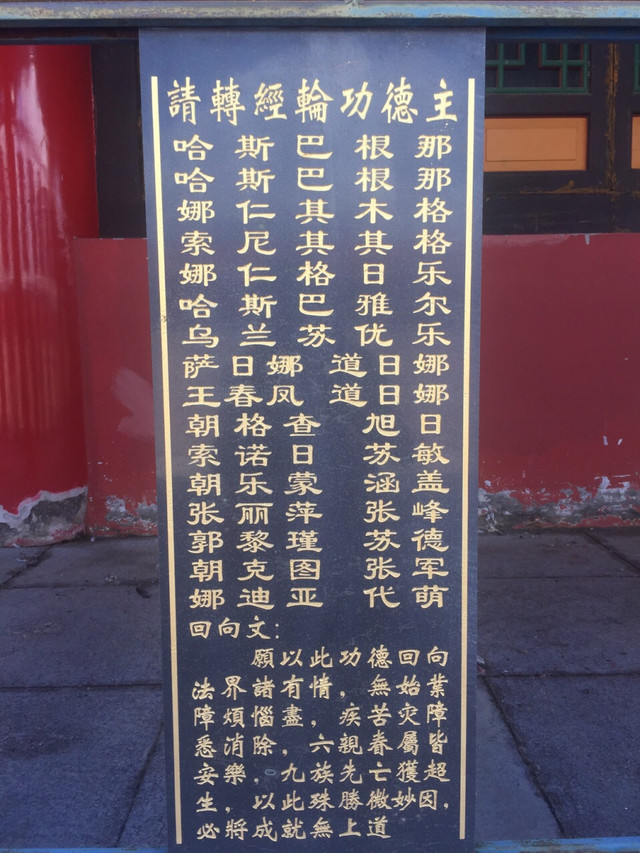 請轉經輪功德主
哈斯巴根那
哈斯巴根那
娜仁其木格
索尼其其格
娜仁格日乐
哈斯巴雅尔
乌兰苏优乐
萨日娜 道日娜
王春凤 道日娜
朝格查 旭日
索诺日 苏敏
朝乐蒙 涵盖
张丽萍 张峰
郭黎瑾 苏德
朝克图 张军
娜迪亚 代萌
回向文：
願以此功德回向
法界諸有情，無始業
障煩惱盡，疾苦灾障
悉消除，六親春屬皆
安樂，九族先亡獲超
生，以此殊勝微妙因，
必將成就無上道